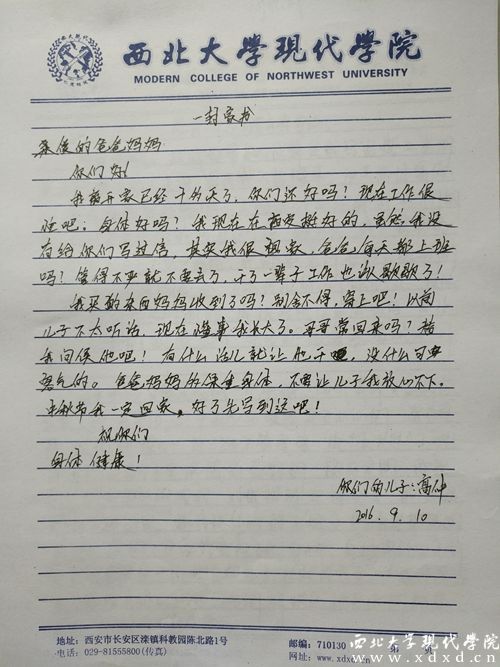 西北大學現代學院
MODERN COLLEGE OF NORTHWEST UNIVERSITY
一封家书
亲爱的爸爸妈妈
你们好!
我离开家已经十多天了,你们还好吗?现在工作很
忙吧;身体好吗?我现在在西安挺好的,虽然我没
有给你们写过信,其实我很想家,爸爸每天都上班
吗?觉得不要就不要去了,干了一辈子工作也该歇歇了!
我买的东西妈妈收到了吗?别舍不得,穿上吧!以前
儿子不太听话,现在懂事我长大了。哥哥常回来吗?替
我问候他吧!有什么活儿就让他干吧,没什么可
客气的。爸爸妈妈多保重身体,不要让儿子我放心不下。
中秋节我一定回家。好了先写到这吧!
祝你们
身体健康!
你们的儿子:高
2016.9.10
地址:西安市长安区滦镇科教园陈北路1号
电话:029-81555800(传真)
邮编:710130
网址:www.xdxd
西北大学现代学院
www.xdxd.cn